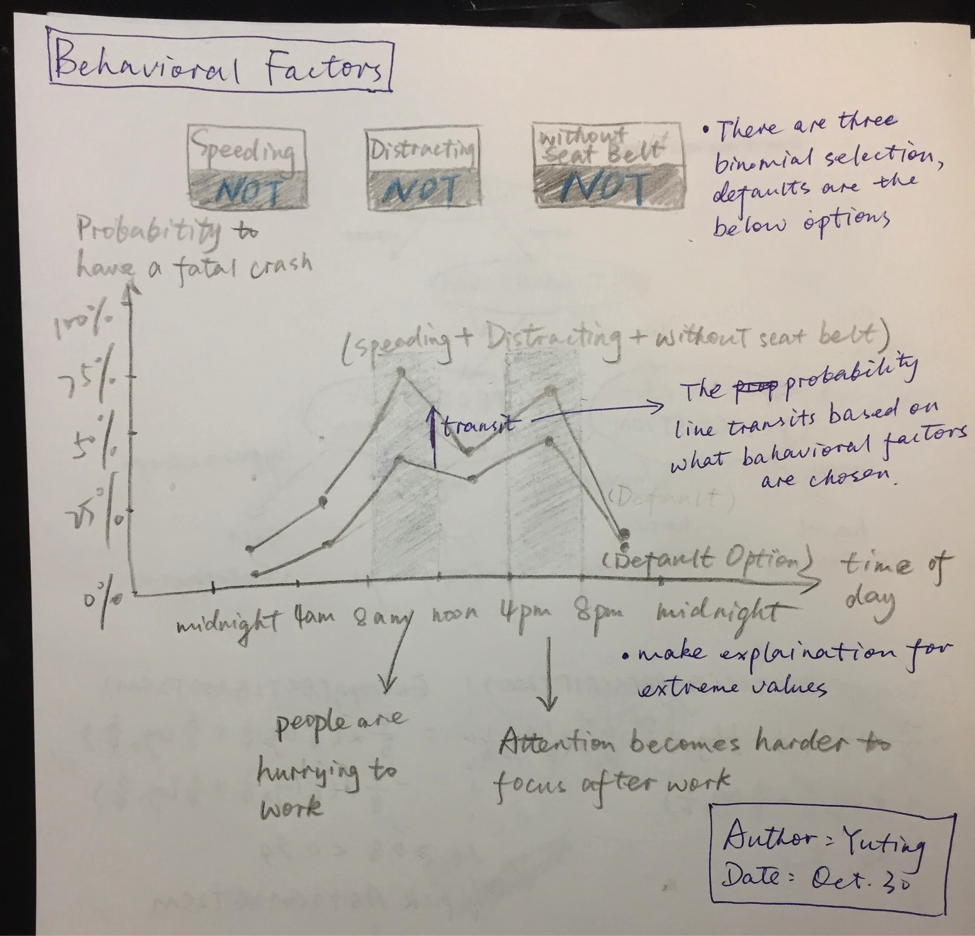 Behavioral Factors
Speeding
NOT
Distracting
NOT
without
Seat Belt
NOT
• There are three
binomial selection,
defaults are the
below options
Probability to
have a fatal crash
100%
75%
50%
25%
0%
(speeding + Distracting + without seat belt)
transit
The prop probability
line transits based on
what bahavioral factors
are chosen.
(Default)
(Default Option)
time of
day
midnight 4am 8am noon 4pm 8pm midnight
• make explaination for
extreme values
people are
hurrying to
work
Attention becomes harder to
focus after work
Author: Yuting
Date: Oct. 30